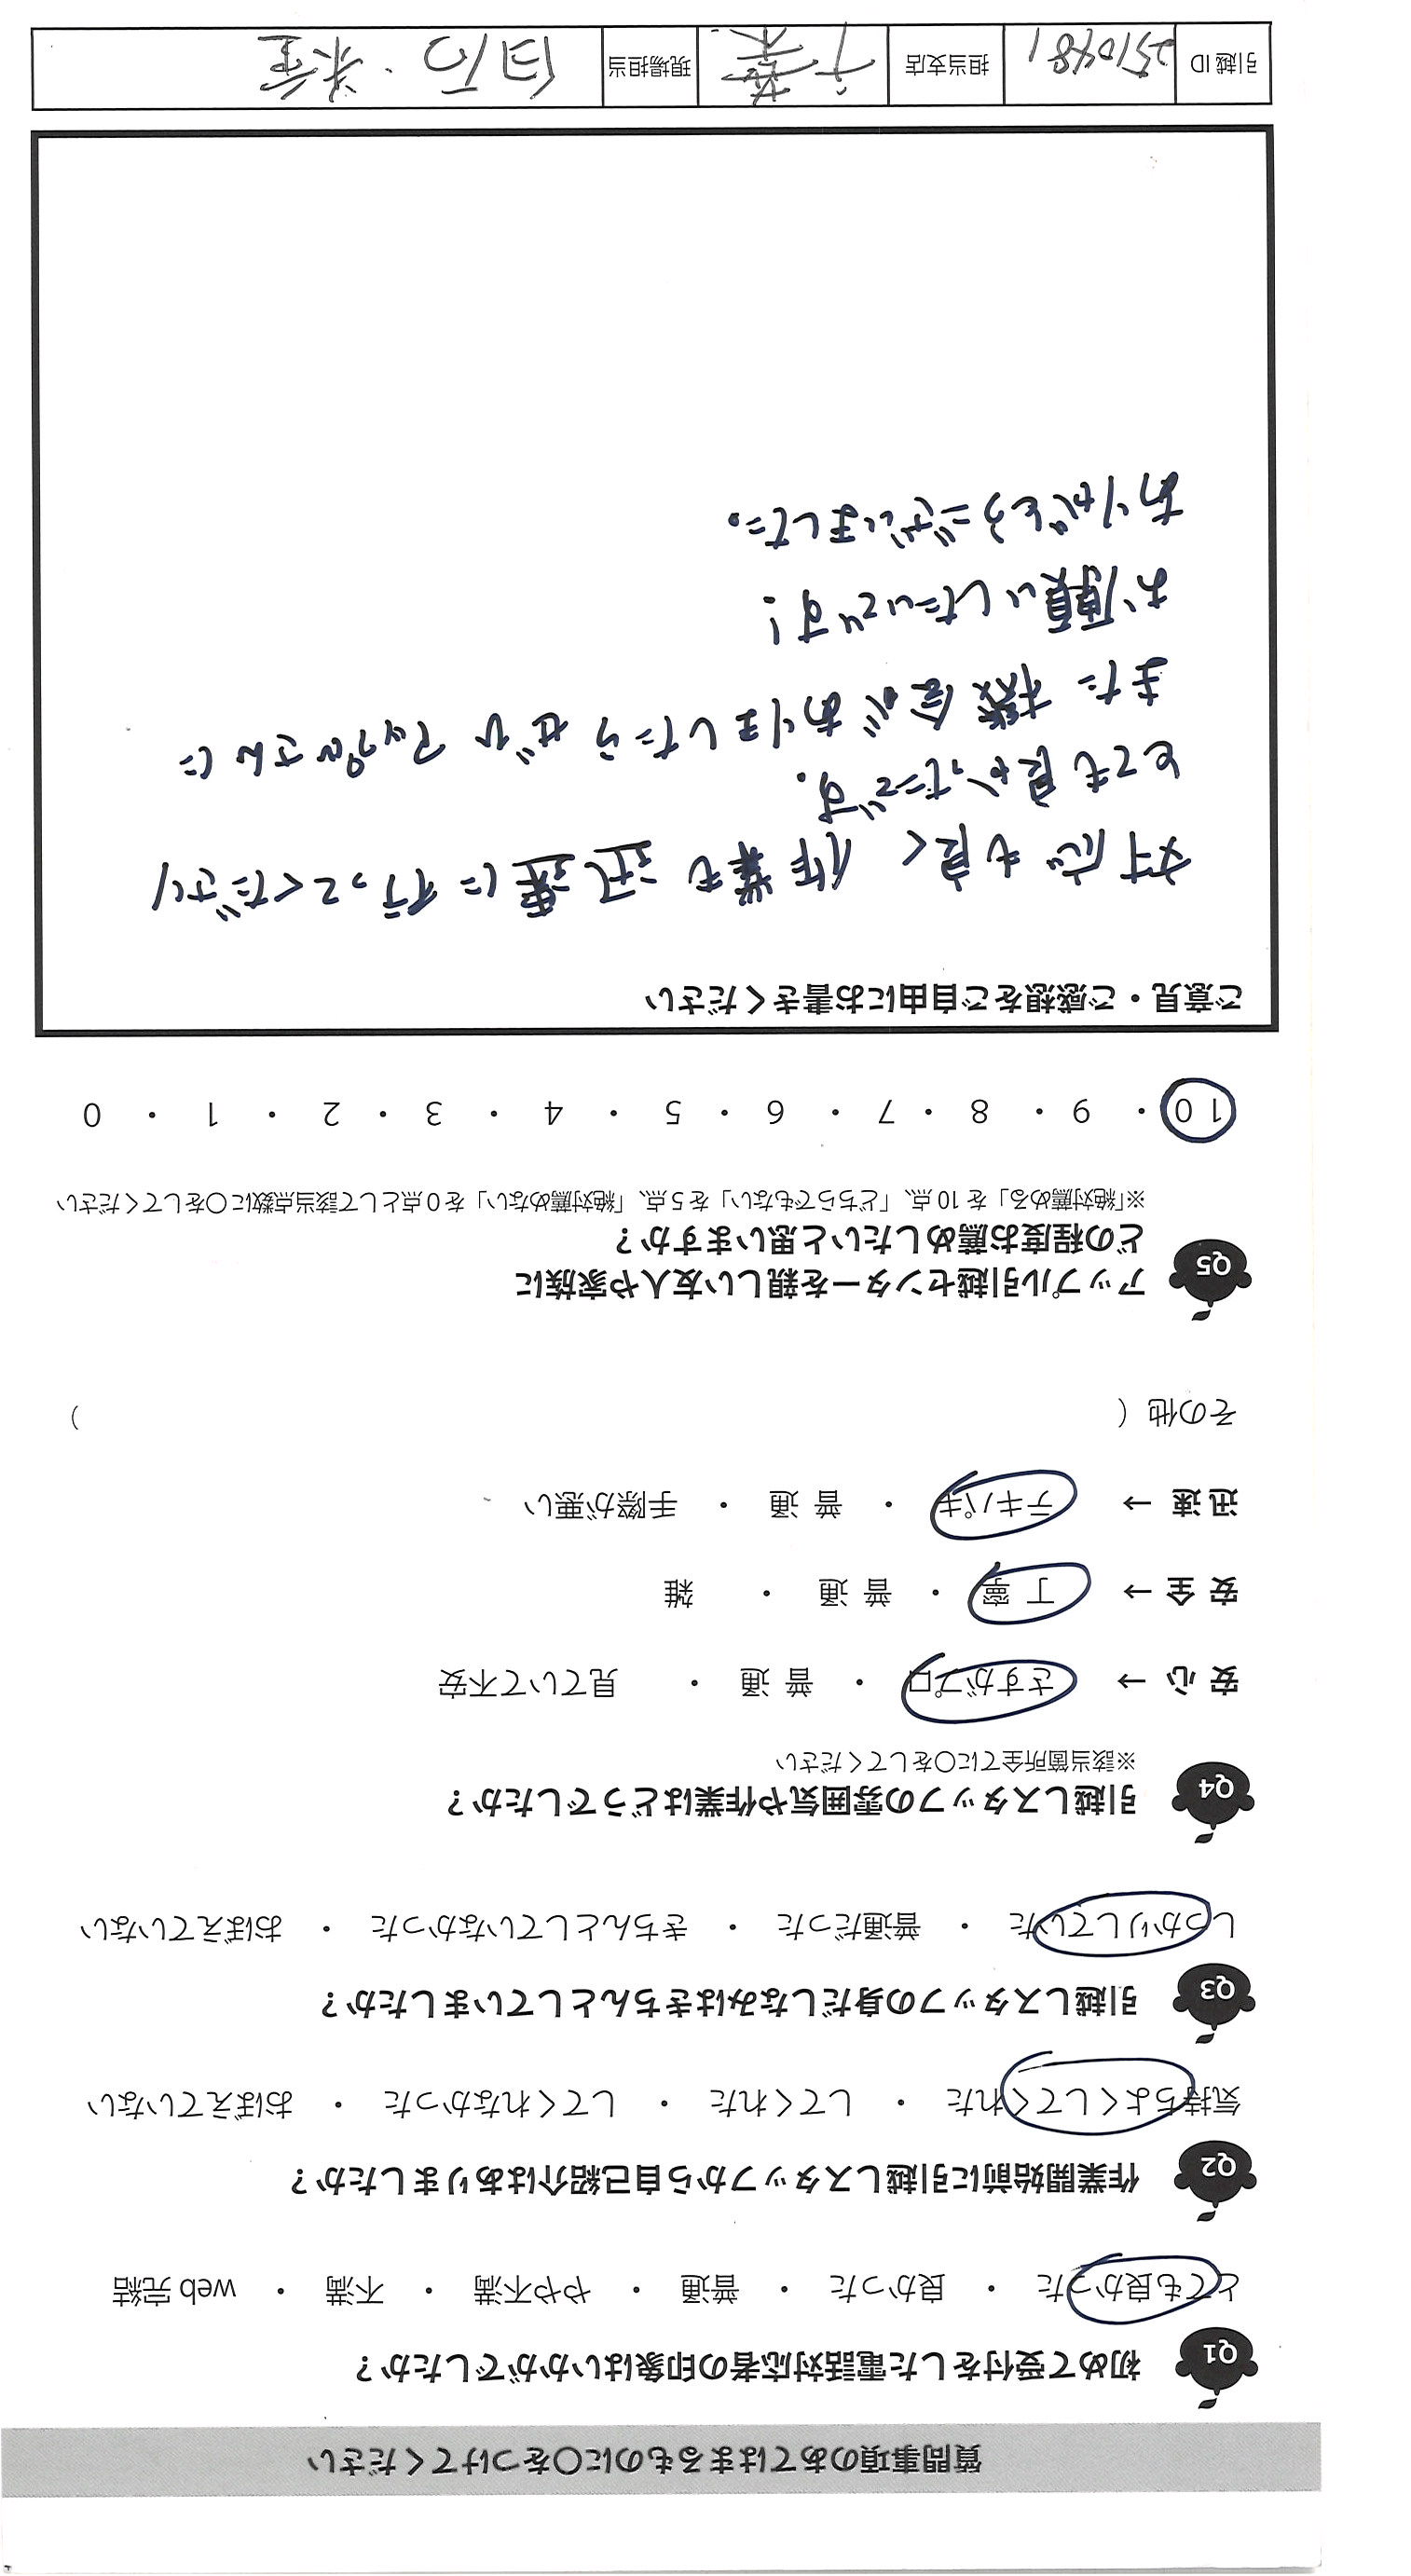 質問事項のあてはまるものに〇をつけてください
Q1 初めて受付をした電話対応者の印象はいかがでしたか？
とても良かった ・ 良かった ・ 普通 ・ やや不満 ・ 不満 ・ web完結
Q2 作業開始前に引越しスタッフから自己紹介はありましたか？
気持ちよくしてくれた ・ してくれた ・ してくれなかった ・ おぼえていない
Q3 引越しスタッフの身だしなみはきちんとしていましたか？
しっかりしていた ・ 普通だった ・ きちんとしていなかった ・ おぼえていない
Q4 引越しスタッフの雰囲気や作業はどうでしたか？
※該当箇所全てに〇をしてください
安心 → さすがプロ ・ 普通 ・ 見ていて不安
安全 → 丁寧 ・ 普通 ・ 雑
迅速 → テキパキ ・ 普通 ・ 手際が悪い
その他 （ ）
Q5 アップル引越センターを親しい友人や家族に
どの程度お薦めしたいと思いますか？
※「絶対薦める」を10点、「どちらでもない」を5点、「絶対薦めない」を0点として該当点数に〇をしてください
10 ・ 9 ・ 8 ・ 7 ・ 6 ・ 5 ・ 4 ・ 3 ・ 2 ・ 1 ・ 0
ご意見・ご感想をご自由にお書きください
対応も良く 作業も迅速に行ってくださり
とても良かったです。
また機会がありましたらぜひアップルさんに
お願いしたいです！
ありがとうございました。
引越ID 2510481 担当支店 千葉 現場担当 白石・米金